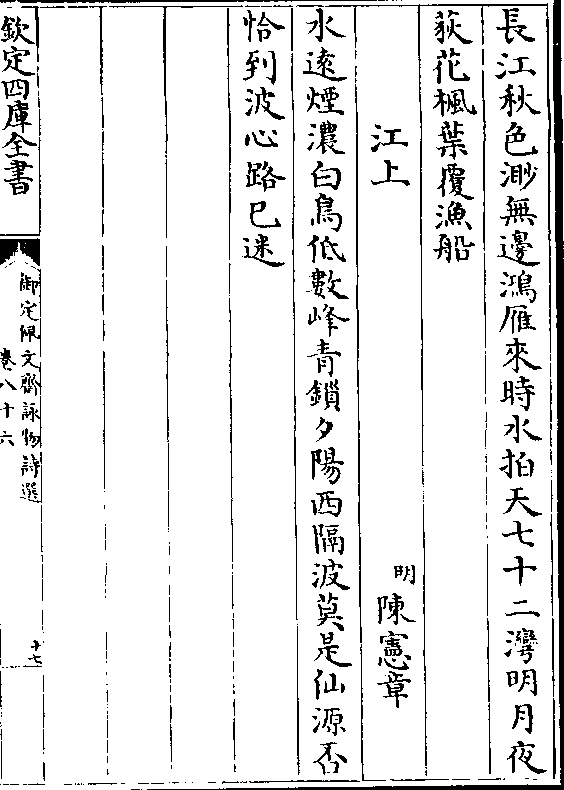 長江秋色渺無邊鴻雁來時水拍天七十二灣明月夜
荻花楓葉覆漁船
江上
明
陳憲章
水遠煙濃白鳥低數峰青鎖夕陽西隔波莫是仙源否
恰到波心路已迷
欽定四庫全書
御定佩文齋詠物詩選
卷八十六
十七